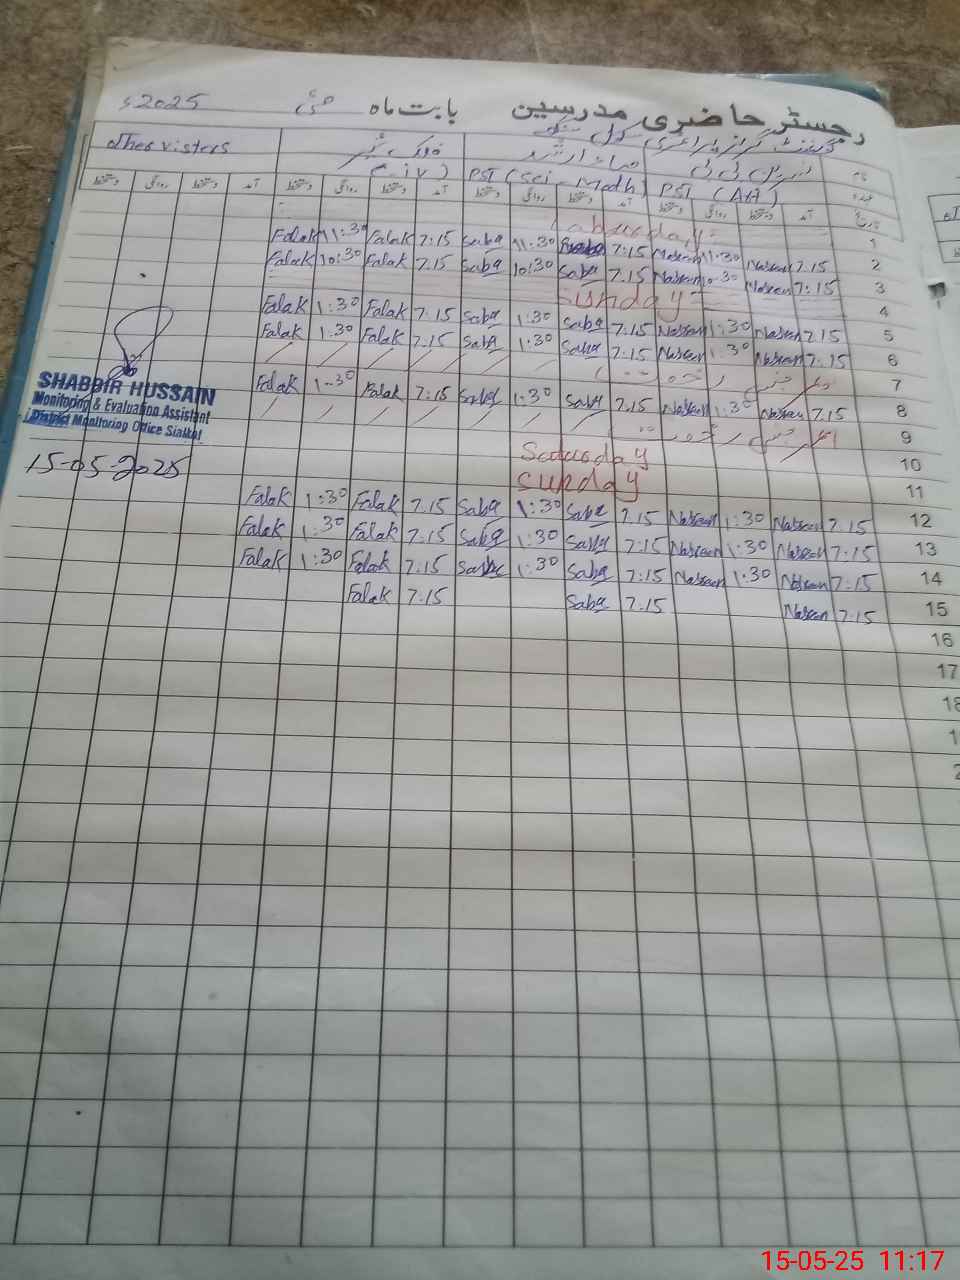 رجسٹر حاضری مدرسین بابت ماہ مئی 2025ء
گورنمنٹ گرلز پرائمری سکول
other visters
PST (Sci-Math) PST (AH)
آمد دستخط روانگی دستخط آمد دستخط روانگی دستخط آمد دستخط روانگی دستخط آمد دستخط روانگی دستخط
1
Falak 11:30 Falak 7:15 Saba 11:30 Saba 7:15 Nasreen 11:30 Nasreen 7.15 2
Falak 10:30 Falak 7.15 Saba 10:30 Saba 7.15 Nasreen 10-30 Nasreen 7:15 3
Sunday 4
Falak 1:30 Falak 7:15 Saba 1:30 Saba 7:15 Nasreen 1:30 Nasreen 7.15 5
Falak 1.30 Falak 7.15 Saba 1:30 Saba 7:15 Nasreen 1:30 Nasreen 7.15 6
7
Falak 1-30 Falak 7.15 Saba 1:30 Saba 7.15 Nasreen 1:30 Nasreen 7.15 8
9
Saturday 10
Sunday 11
Falak 1:30 Falak 7.15 Saba 1:30 Saba 7.15 Nasreen 1:30 Nasreen 7.15 12
Falak 1:30 Falak 7.15 Saba 1:30 Saba 7:15 Nasreen 1:30 Nasreen 7:15 13
Falak 1:30 Falak 7.15 Saba 1:30 Saba 7:15 Nasreen 1.30 Nasreen 7:15 14
Falak 7:15 Saba 7.15 Nasreen 7.15 15
16
17
SHABBIR HUSSAIN
Monitoring & Evaluation Assistant
District Monitoring Office Sialkot
15-05-2025
15-05-25 11:17